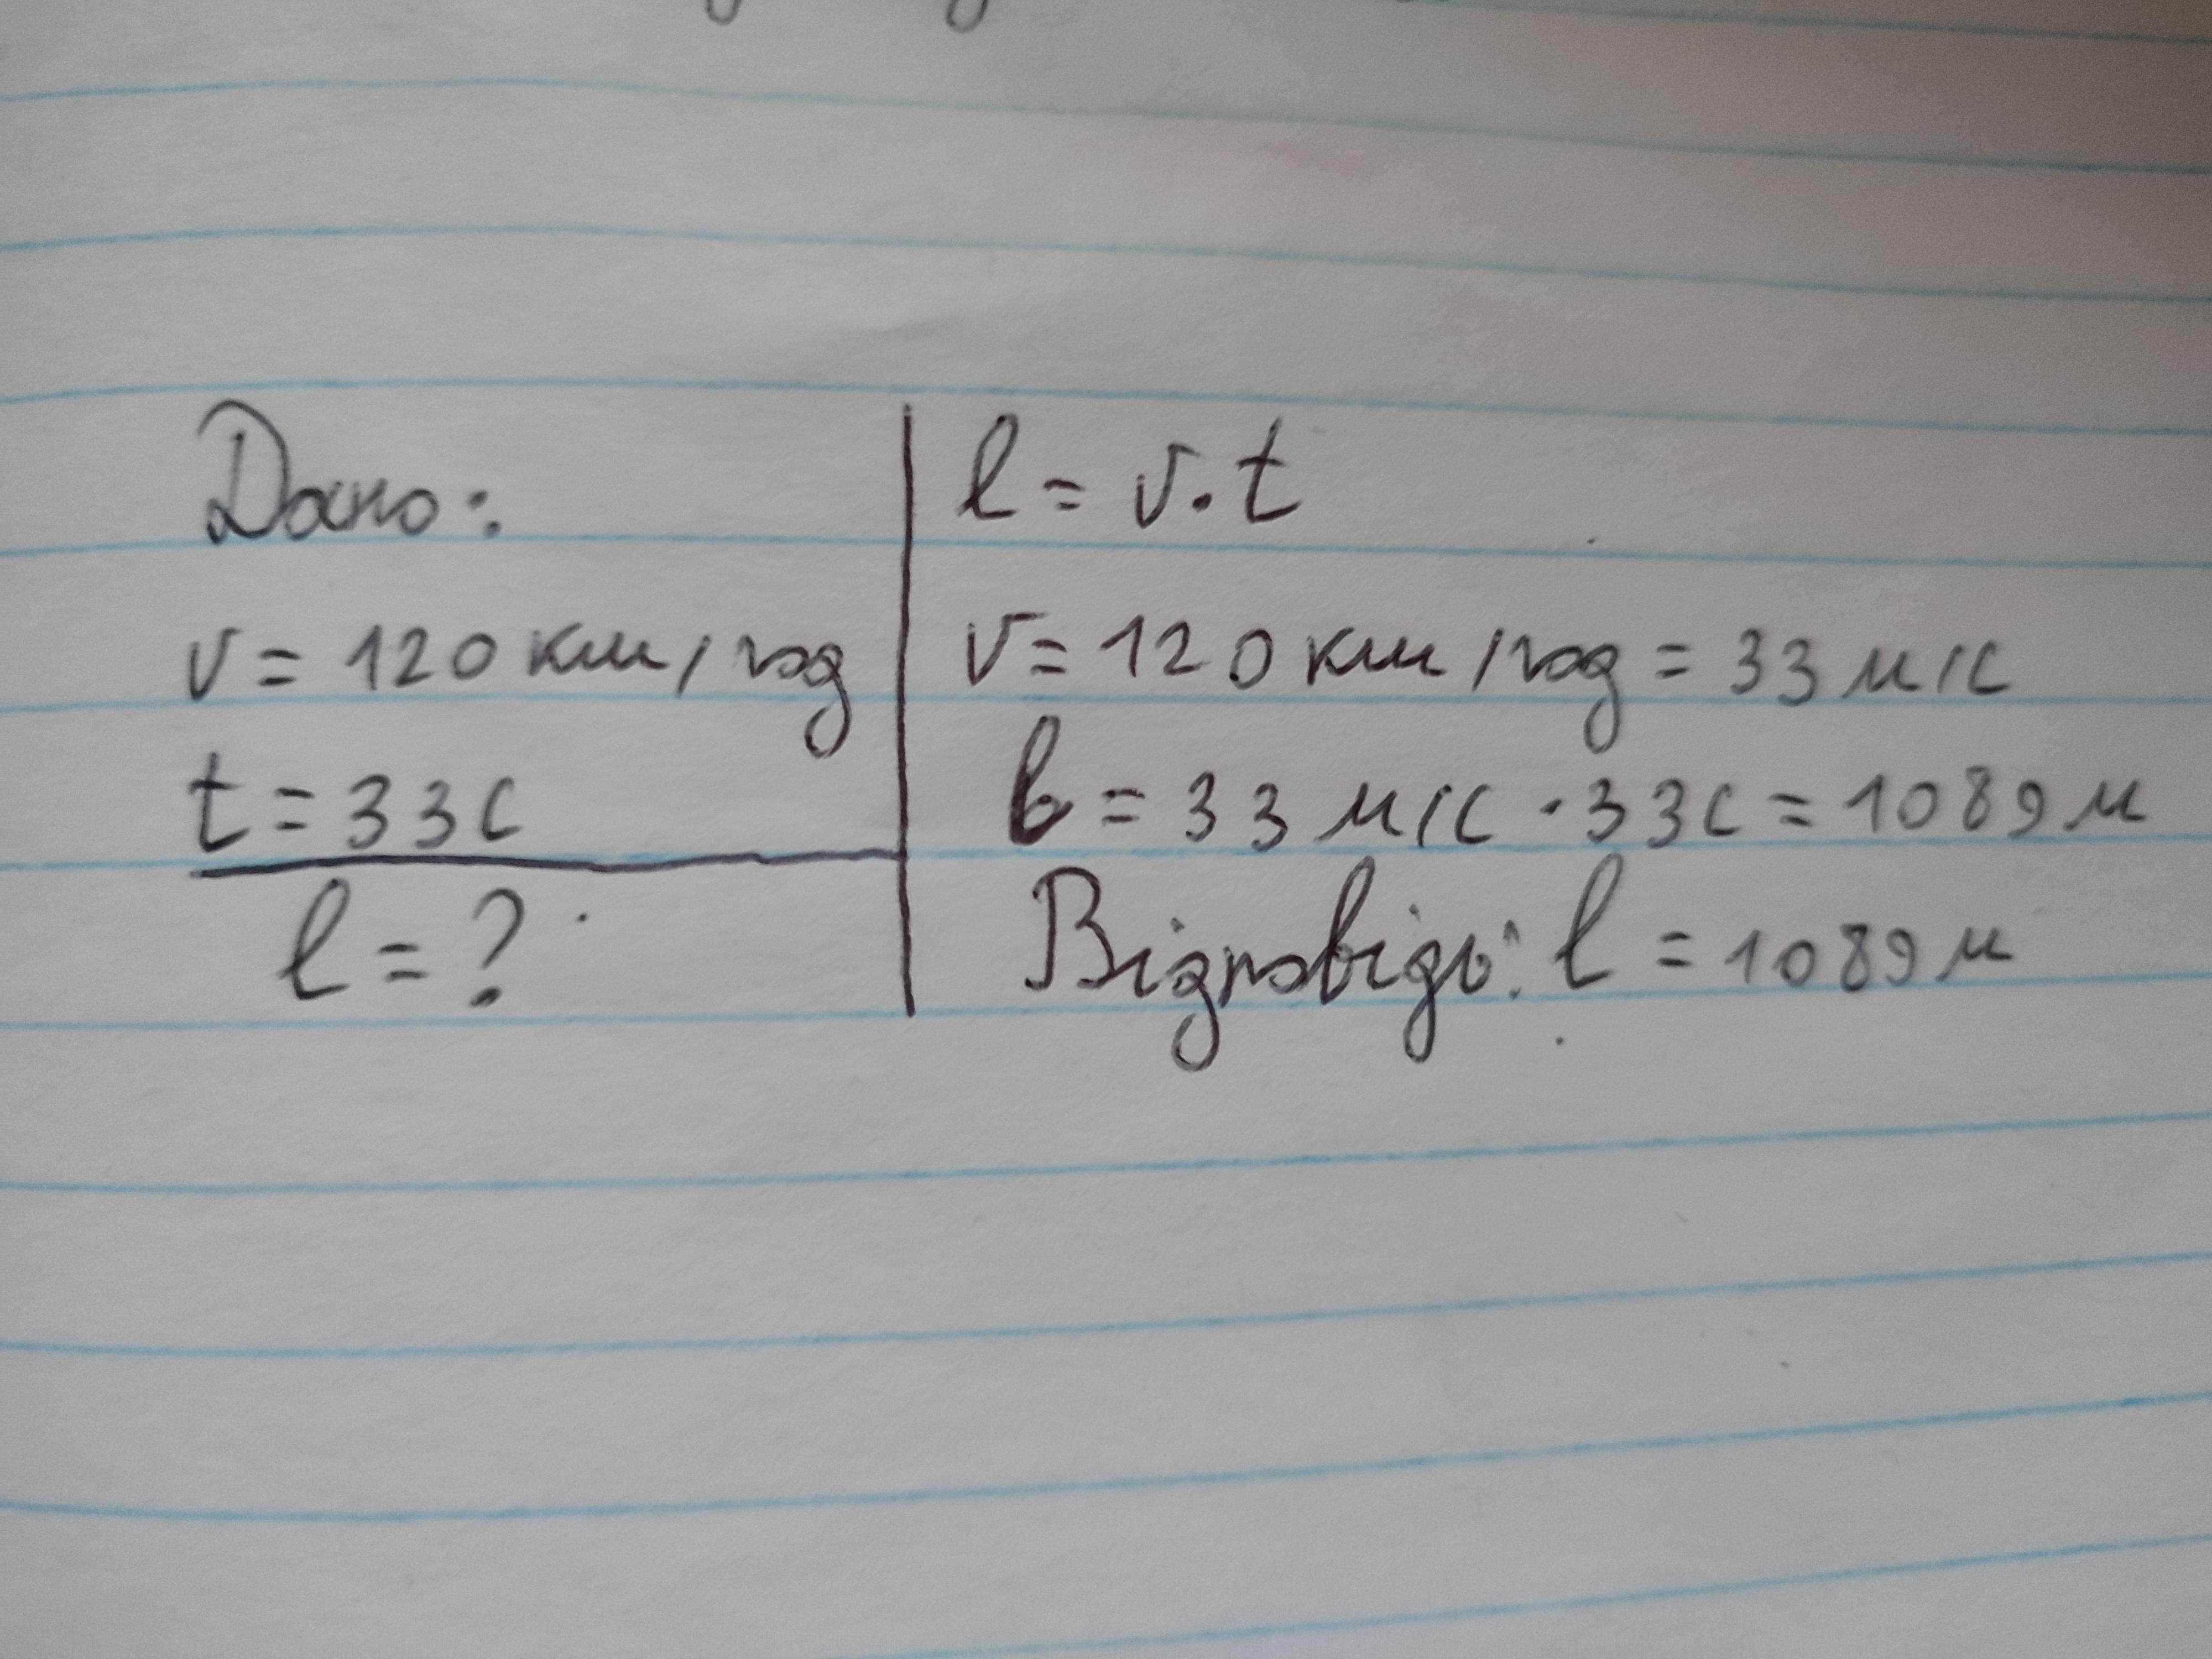 Дано:
v = 120 км/год
t = 33 с
l = ?
l = v · t
v = 120 км/год = 33 м/с
l = 33 м/с · 33 с = 1089 м
Відповідь: l = 1089 м